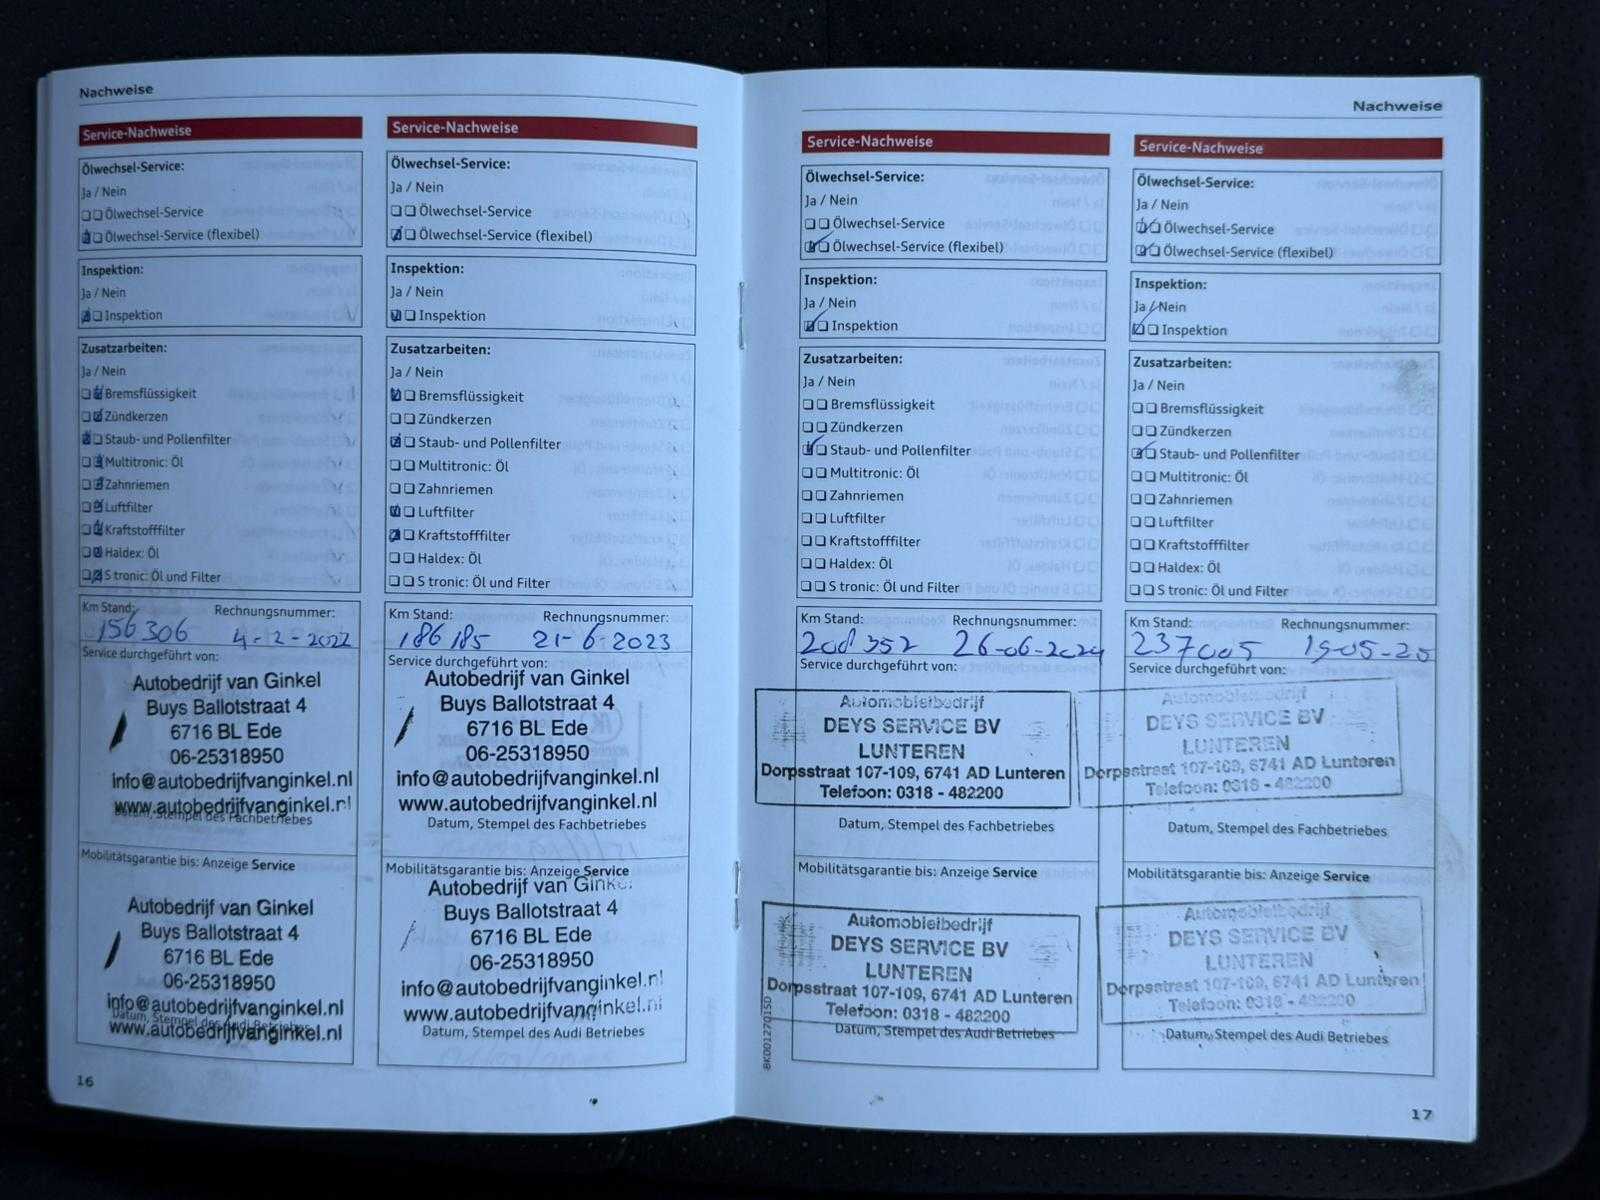 Nachweise
Service-Nachweise
Ölwechsel-Service:
Ja / Nein
Ölwechsel-Service
Ölwechsel-Service (flexibel)
Inspektion:
Ja / Nein
Inspektion
Zusatzarbeiten:
Ja / Nein
Bremsflüssigkeit
Zündkerzen
Staub- und Pollenfilter
Multitronic: Öl
Zahnriemen
Luftfilter
Kraftstofffilter
Haldex: Öl
S tronic: Öl und Filter
Km Stand: Rechnungsnummer:
156306 4-2-2022
Service durchgeführt von:
Autobedrijf van Ginkel
Buys Ballotstraat 4
6716 BL Ede
06-25318950
info@autobedrijfvanginkel.nl
www.autobedrijfvanginkel.nl
Datum, Stempel des Fachbetriebes
Mobilitätsgarantie bis: Anzeige Service
Autobedrijf van Ginkel
Buys Ballotstraat 4
6716 BL Ede
06-25318950
info@autobedrijfvanginkel.nl
Datum, Stempel des Audi Betriebes
www.autobedrijfvanginkel.nl
16
Service-Nachweise
Ölwechsel-Service:
Ja / Nein
Ölwechsel-Service
Ölwechsel-Service (flexibel)
Inspektion:
Ja / Nein
Inspektion
Zusatzarbeiten:
Ja / Nein
Bremsflüssigkeit
Zündkerzen
Staub- und Pollenfilter
Multitronic: Öl
Zahnriemen
Luftfilter
Kraftstofffilter
Haldex: Öl
S tronic: Öl und Filter
Km Stand: Rechnungsnummer:
186185 21-6-2023
Service durchgeführt von:
Autobedrijf van Ginkel
Buys Ballotstraat 4
6716 BL Ede
06-25318950
info@autobedrijfvanginkel.nl
www.autobedrijfvanginkel.nl
Datum, Stempel des Fachbetriebes
Mobilitätsgarantie bis: Anzeige Service
Autobedrijf van Ginkel
Buys Ballotstraat 4
6716 BL Ede
06-25318950
info@autobedrijfvanginkel.nl
www.autobedrijfvanginkel.nl
Datum, Stempel des Audi Betriebes
Nachweise
Service-Nachweise
Ölwechsel-Service:
Ja / Nein
Ölwechsel-Service
Ölwechsel-Service (flexibel)
Inspektion:
Ja / Nein
Inspektion
Zusatzarbeiten:
Ja / Nein
Bremsflüssigkeit
Zündkerzen
Staub- und Pollenfilter
Multitronic: Öl
Zahnriemen
Luftfilter
Kraftstofffilter
Haldex: Öl
S tronic: Öl und Filter
Km Stand: Rechnungsnummer:
26-06-2024
Service durchgeführt von:
Automobielbedrijf
DEYS SERVICE BV
LUNTEREN
Dorpsstraat 107-109, 6741 AD Lunteren
Telefoon: 0318 - 482200
Datum, Stempel des Fachbetriebes
Mobilitätsgarantie bis: Anzeige Service
Automobielbedrijf
DEYS SERVICE BV
LUNTEREN
Dorpsstraat 107-109, 6741 AD Lunteren
Telefoon: 0318 - 482200
Datum, Stempel des Audi Betriebes
8K0012701SD
Service-Nachweise
Ölwechsel-Service:
Ja / Nein
Ölwechsel-Service
Ölwechsel-Service (flexibel)
Inspektion:
Ja / Nein
Inspektion
Zusatzarbeiten:
Ja / Nein
Bremsflüssigkeit
Zündkerzen
Staub- und Pollenfilter
Multitronic: Öl
Zahnriemen
Luftfilter
Kraftstofffilter
Haldex: Öl
S tronic: Öl und Filter
Km Stand: Rechnungsnummer:
237005 19-05-25
Service durchgeführt von:
Automobielbedrijf
DEYS SERVICE BV
LUNTEREN
Dorpsstraat 107-109, 6741 AD Lunteren
Telefoon: 0318 - 482200
Datum, Stempel des Fachbetriebes
Mobilitätsgarantie bis: Anzeige Service
Automobielbedrijf
DEYS SERVICE BV
LUNTEREN
Dorpsstraat 107-109, 6741 AD Lunteren
Telefoon: 0318 - 482200
Datum, Stempel des Audi Betriebes
17